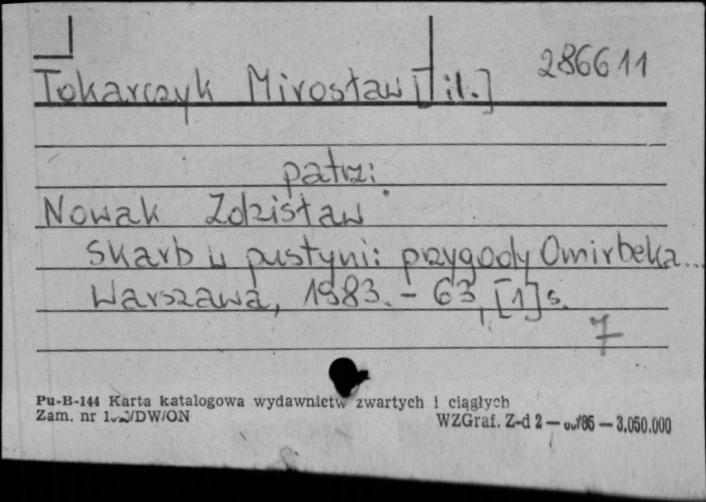 286611
Tokarczyk Mirosław [il.]
patrz:
Nowak Zdzisław
Skarb w pustyni: przygody Omirbeka...
Warszawa, 1983. - 63, [1] s.
7
Pu-B-144 Karta katalogowa wydawnictw zwartych i ciągłych
Zam. nr /DW/ON
WZGraf. Z-d 2 — /85 — 3.050.000